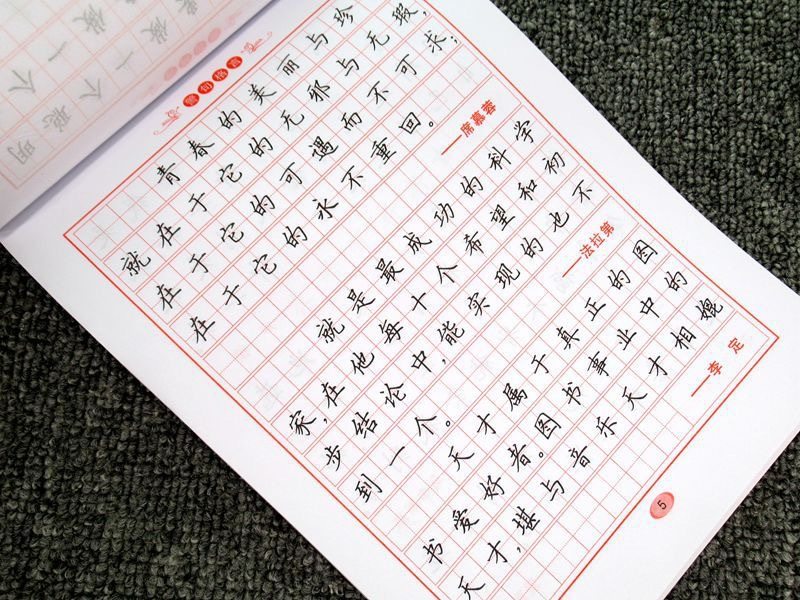 警句格言
青春的美丽与珍
就在于它的无邪与无瑕,
在于它的可遇而不可求;
在于它的永不重回。
——席慕蓉
就是最成功的科学
家,在他每十个希望和初
步结论中,能实现的也不
到一个。
——法拉第
天才属于真正的图
书爱好者。图书事业中的
天才,堪与音乐天才相媲
——李定
5